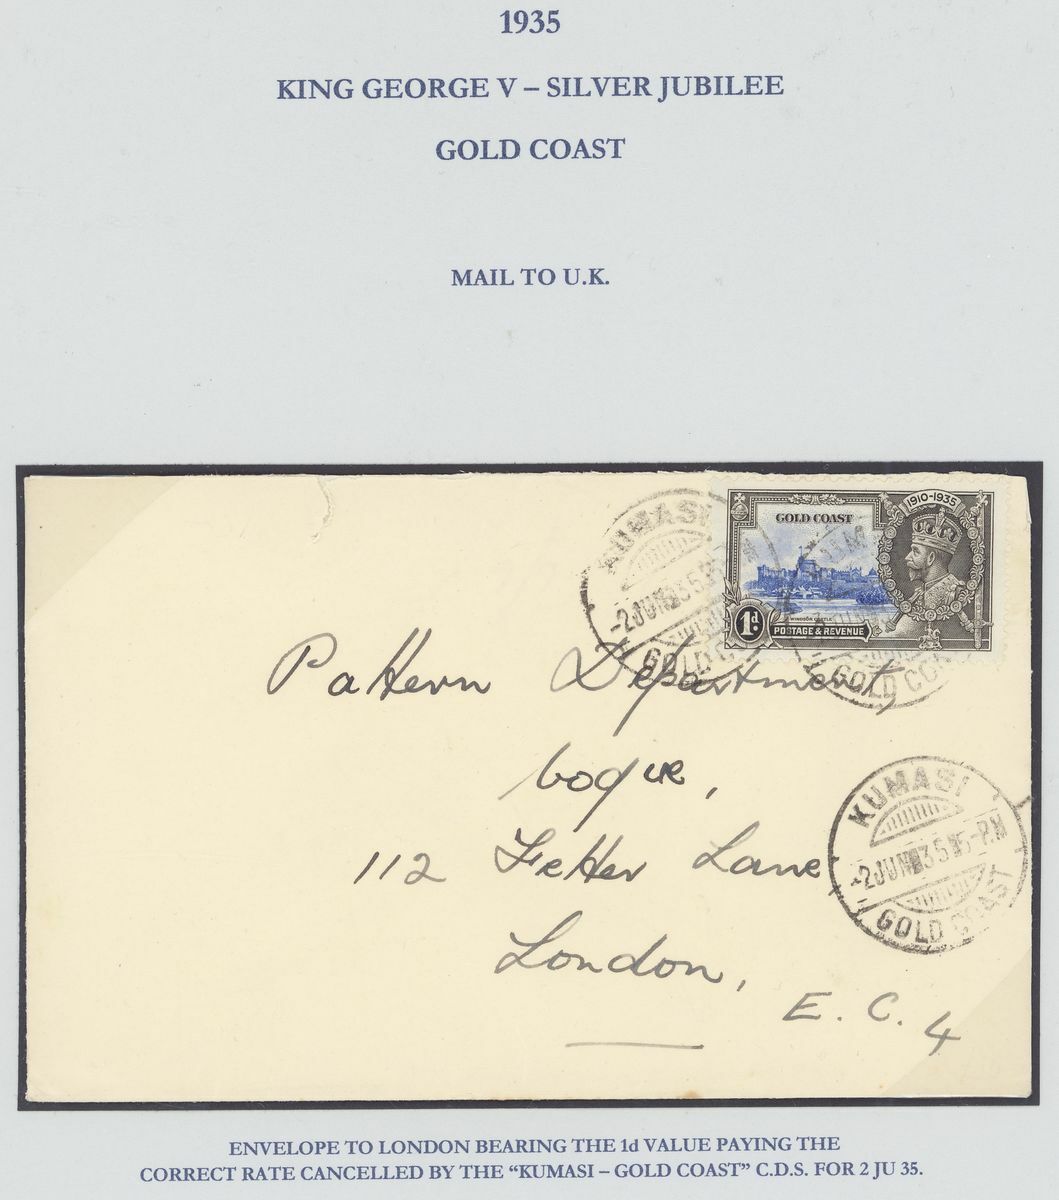 1935
KING GEORGE V – SILVER JUBILEE
GOLD COAST
MAIL TO U.K.
KUMASI
-2JUN35
GOLD C
1910-1935
GOLD COAST
WINDSOR CASTLE
1d.
POSTAGE & REVENUE
GOLD CO
Pattern Department,
Vogue,
112 Fetter Lane,
London,
E. C. 4
KUMASI
-2JUN355-P.M
GOLD COAST
ENVELOPE TO LONDON BEARING THE 1d VALUE PAYING THE
CORRECT RATE CANCELLED BY THE “KUMASI – GOLD COAST” C.D.S. FOR 2 JU 35.